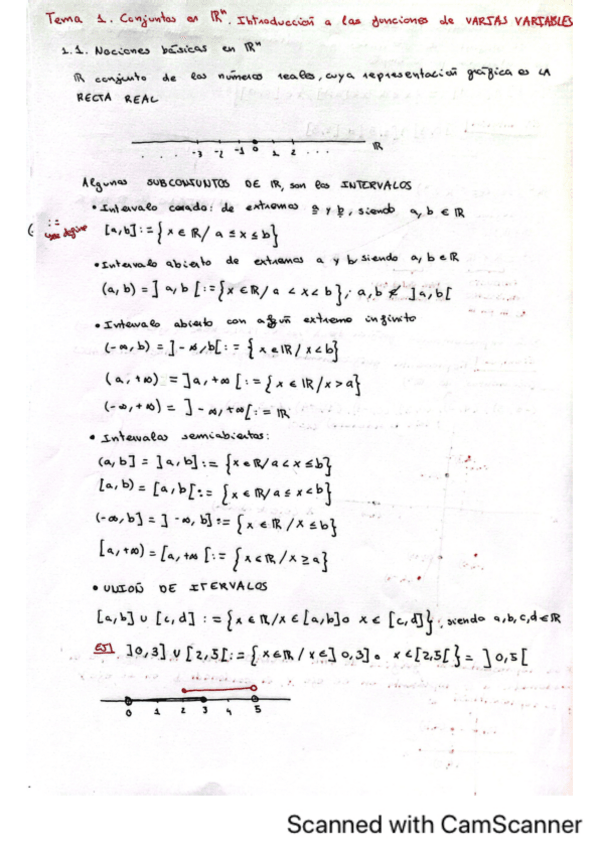 Tema 1. Conjuntos en ℝⁿ. Introducción a las funciones de VARIAS VARIABLES
1.1. Nociones básicas en ℝⁿ
ℝ conjunto de los números reales, cuya representación gráfica es LA
RECTA REAL
. . . . -3 -2 -1 0 1 2 . . . ℝ
Algunos SUBCONJUNTOS DE ℝ, son los INTERVALOS
• Intervalo cerrado: de extremos a y b, siendo a, b ∈ ℝ
:=
[a,b] := {x ∈ ℝ / a ≤ x ≤ b}
• Intervalo abierto de extremos a y b siendo a, b ∈ ℝ
(a, b) = ] a, b [ := {x ∈ ℝ / a < x < b}; a, b ∉ ]a, b[
• Intervalo abierto con algún extremo infinito
(-∞, b) = ]-∞, b[ := {x ∈ ℝ / x < b}
(a, +∞) = ]a, +∞[ := {x ∈ ℝ / x > a}
(-∞, +∞) = ]-∞, +∞[ := ℝ
• Intervalos semiabiertos:
(a, b] = ]a, b] := {x ∈ ℝ / a < x ≤ b}
[a, b) = [a, b[ := {x ∈ ℝ / a ≤ x < b}
(-∞, b] = ]-∞, b] := {x ∈ ℝ / x ≤ b}
[a, +∞) = [a, +∞[ := {x ∈ ℝ / x ≥ a}
• UNIÓN DE ITERVALOS
[a,b] ∪ [c,d] := {x ∈ ℝ / x ∈ [a,b] o x ∈ [c,d]}, siendo a,b,c,d ∈ ℝ
EJ ]0,3] ∪ [2,5[ := {x ∈ ℝ / x ∈ ]0,3] o x ∈ [2,5[} = ]0,5[
0 1 2 3 4 5
Scanned with CamScanner